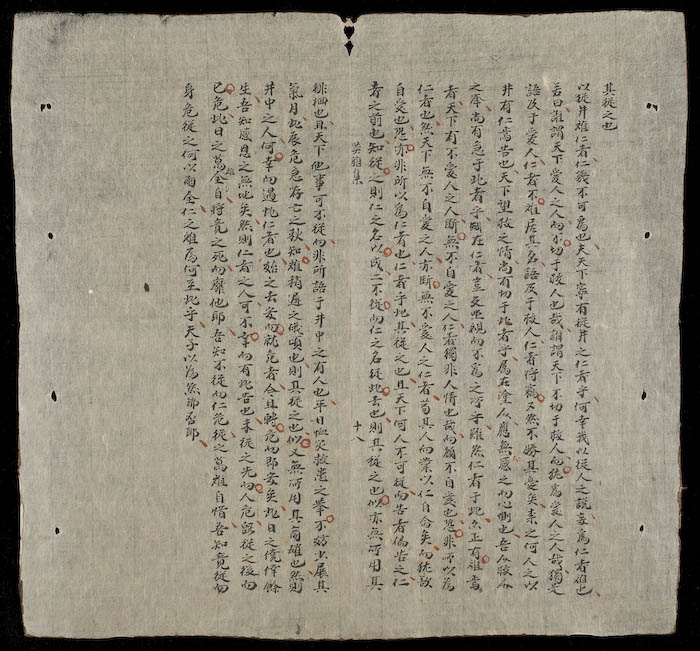 其從之也
以從井難仁者仁幾不可為也夫天下寧有從井之仁者乎何宰我以從人之說妄為仁者難也
若曰誰謂天下愛人之人而不切于救人也哉誰謂天下不切于救人而猶為愛人之人哉獨是
語及于愛人仁者不難居其名語及于救人仁者將窮又然不勝其憂矣素之何人之以
井有仁焉告也天下望救之情尚有切于此者乎屬在塗人應無慼之而心惻也吾人救人
之際尚有急于此者乎矧在仁者豈忍坐視而不為之濟乎雖然仁者于此亦正有難焉
者天下有不愛人之人斷無不自愛之人仁者獨非人情也哉而顧不自愛也恐非所以為
仁者也然天下無不自愛之人亦斷無不愛人之仁者苟其人而業以仁自命矣而猶歉
自愛也恐亦非所以為仁者也仁者乎此其從之也且天下何人不可從而告者偏告之仁
者之前也知從之則仁之名以成一不從而仁之名從此去也則其從之也似亦無所用其
英雅集
十八
徘徊也且天下他事可不從而非所語于井中之有人也平日恤災救患之舉不妨少展其
氣月此辰危急存亡之秋知難稍遲之俄頃也則其從之也似又無所用其商確也然則
井中之人何幸而遇此仁者也始之去安而就危者今且轉危而即安矣此日之僥倖餘
生吾知感恩之無地矣然則仁者之人可不幸而有此告也未從之先而人危既從之後而
己危此日之萬難全自將竟之死而靡他耶吾知不從而仁危從之萬難自惜吾知竟從而
身危從之何以兩全仁之難為何至此乎夫子以為然耶否耶